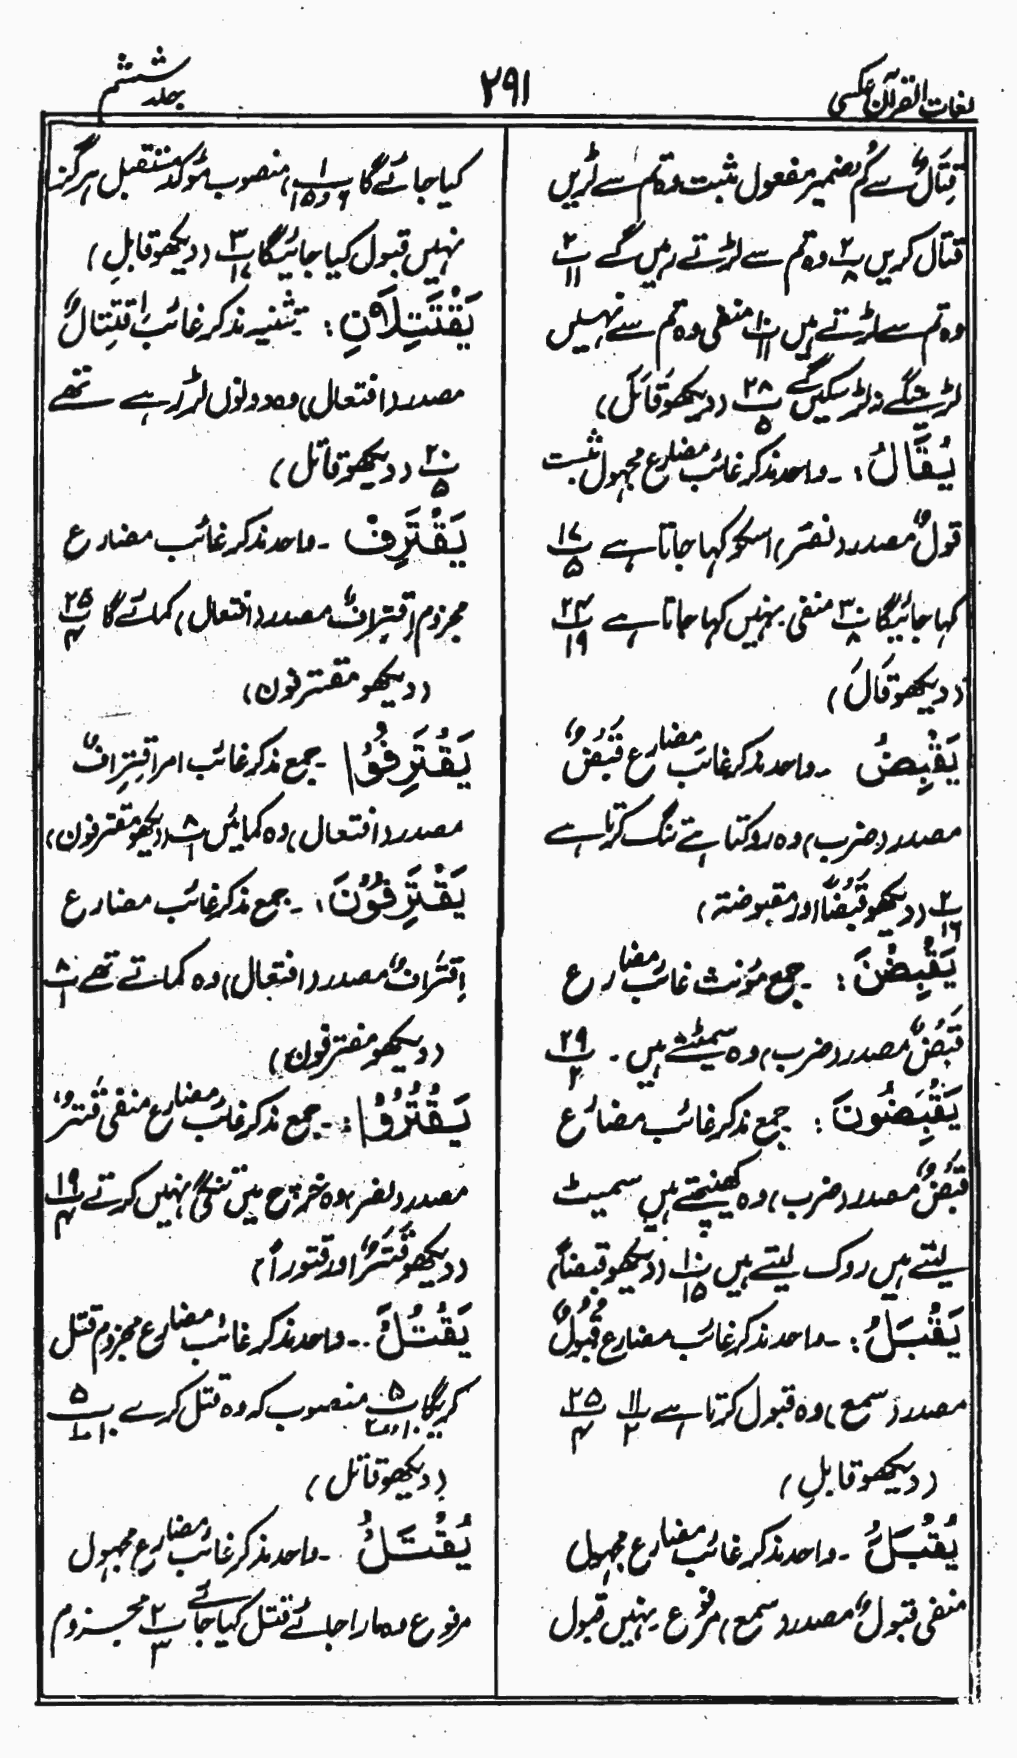 لغات القرآن عکسی
۲۹۱
جلد ششم
قِتَالٌ سے کُم ضمیر مفعول مثبت وہ تم سے لڑیں
قتال کریں ۲/۸ وہ تم سے لڑتے رہیں گے ۲/۱۱
وہ تم سے لڑتے ہیں ۱۰/۱۱ منفی وہ تم سے نہیں
لڑینگے نہ لڑ سکیں گے ۲۸/۵ (دیکھو قَاتَلَ)
یُقَالُ: ۔ واحد مذکر غائب مضارع مجہول مثبت
قولٌ مصدر (نصَر) اسکو کہا جاتا ہے ۱۷/۵
کہا جائیگا ۳۰/۸ منفی ۔ نہیں کہا جاتا ہے ۲۴/۱۹
(دیکھو قَالَ)
یَقْبِضُ ۔ واحد مذکر غائب مضارع قَبْضٌ
مصدر (ضرب) وہ روکتا ہے تنگ کرتا ہے
۲/۱۶ (دیکھو قَبْضًا اور مقبوضۃ)
یَقْبِضْنَ: جمع مؤنث غائب مضارع
قَبْضٌ مصدر (ضرب) وہ سمیٹتے ہیں ۔ ۲۹/۲
یَقْبِضُونَ: جمع مذکر غائب مضارع
قَبْضٌ مصدر (ضرب) وہ کھینچتے ہیں سمیٹ
لیتے ہیں روک لیتے ہیں ۱۰/۱۵ (دیکھو قبضاً)
یَقْبَلُ: ۔ واحد مذکر غائب مضارع قُبُولٌ
مصدر (سمع) وہ قبول کرتا ہے ۱۱/۲ ۲۵/۴
(دیکھو قابلِ)
یُقْبَلُ ۔ واحد مذکر غائب مضارع مجہول
منفی قبولٌ مصدر (سمع) مرفوع نہیں قبول
کیا جائے گا ۱/۶و۱۵، منصوب مؤکد مستقبل ہرگز
نہیں قبول کیا جائیگا ۳/۱۷ (دیکھو قابلِ)
یَقْتَتِلَانِ: تثنیہ مذکر غائب اقتِتالٌ
مصدر (افتعال) وہ دونوں لڑ رہے تھے
۲۰/۵ (دیکھو قاتل)
یَقْتَرِفْ ۔ واحد مذکر غائب مضارع
مجزوم اِقتِرافٌ مصدر (افتعال) کمائے گا ۲۵/۴
(دیکھو مقترفون)
یَقْتَرِفُوْا ۔ جمع مذکر غائب امر اقتِرافٌ
مصدر (افتعال) وہ کمائیں ۸/۱ (دیکھو مقترفون)
یَقْتَرِفُوْنَ: ۔ جمع مذکر غائب مضارع
اِقتِرافٌ مصدر (افتعال) وہ کماتے تھے ۸/۱
(دیکھو مقترفون)
یَقْتُرُوْا: ۔ جمع مذکر غائب مضارع منفی قَتْرٌ
مصدر (نصر) وہ خرچ میں تنگی نہیں کرتے ۱۹/۴
(دیکھو قَتَرٌ اور قتوراً)
یَقْتُلُ ۔۔ واحد مذکر غائب مضارع مجزوم قتل
کریگا ۵/۱۰ منصوب کہ وہ قتل کرے ۵/۱۰
(دیکھو قاتل)
یُقْتَلُ ۔ واحد مذکر غائب مضارع مجہول
مرفوع وہ مارا جائے قتل کیا جائے ۲/۳ مجزوم